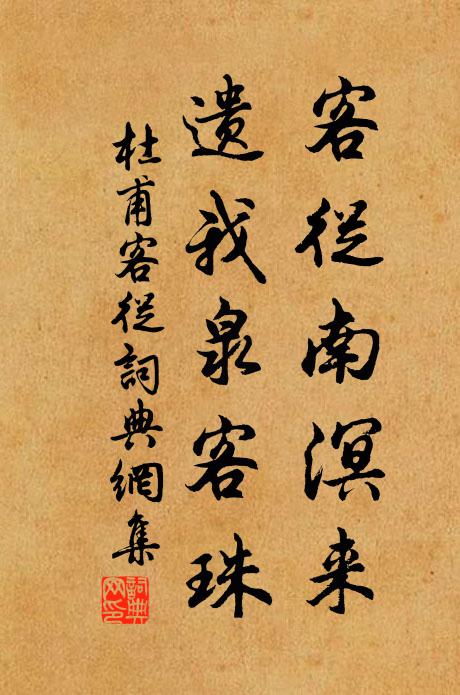 客從南溟来
遺我泉客珠
杜甫客從詞典網集
詞典网印